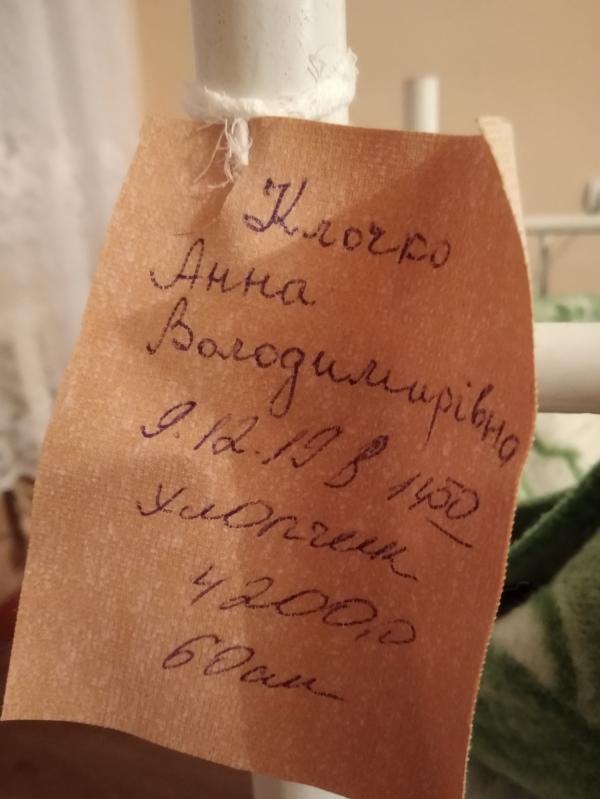 Клочко
Анна
Володимирівна
9.12.19 в 14 50
хлопчик
4200,0
60 см